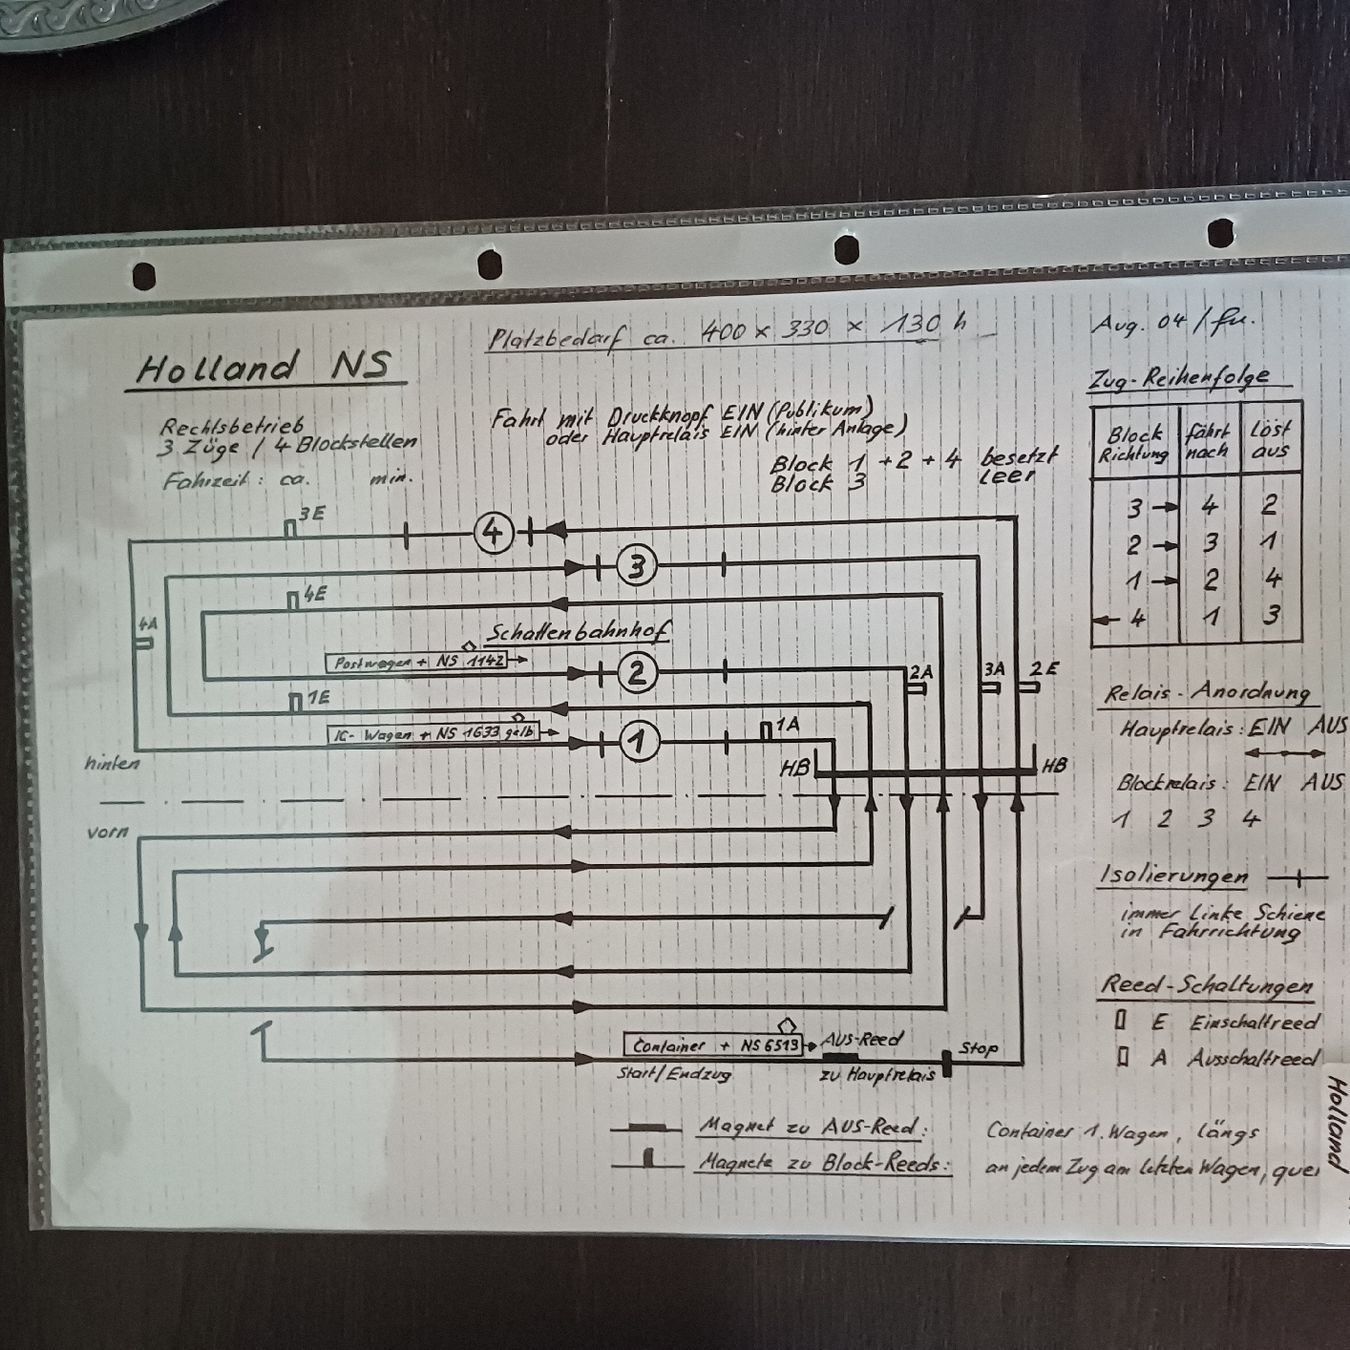 Platzbedarf ca. 400 x 330 x 130 h
Aug. 04 / fu.
Holland NS
Rechtsbetrieb
3 Züge / 4 Blockstellen
Fahrzeit : ca. min.
Fahrt mit Druckknopf EIN (Publikum)
oder Hauptrelais EIN (hinter Anlage)
Block 1 + 2 + 4 besetzt
Block 3 leer
Zug-Reihenfolge
Block Richtung fährt nach Löst aus
3 → 4 2
2 → 3 1
1 → 2 4
← 4 1 3
3E
4
3
4E
4A
Schattenbahnhof
Postwagen + NS 1142
2
2A
3A
2E
1E
IC- Wagen + NS 1633 gelb
1
1A
HB
HB
hinten
vorn
Relais - Anordnung
Hauptrelais : EIN AUS
Blockrelais : EIN AUS
1 2 3 4
Isolierungen
immer linke Schiene
in Fahrrichtung
Reed-Schaltungen
E Einschaltreed
A Ausschaltreed
Container + NS 6513
AUS-Reed
Stop
Start/Endzug
zu Hauptrelais
Magnet zu AUS-Reed : Container 1. Wagen, längs
Magnete zu Block-Reeds : an jedem Zug am letzten Wagen, quer
Holland